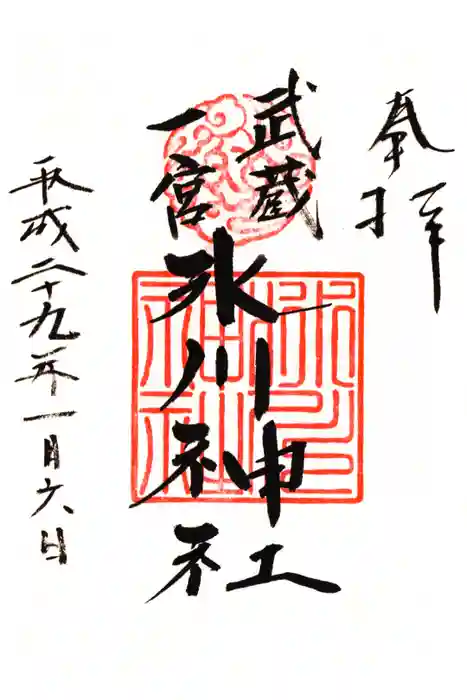 奉拝
武蔵
一宮
氷川神社
平成二十九年一月六日
氷川
神社